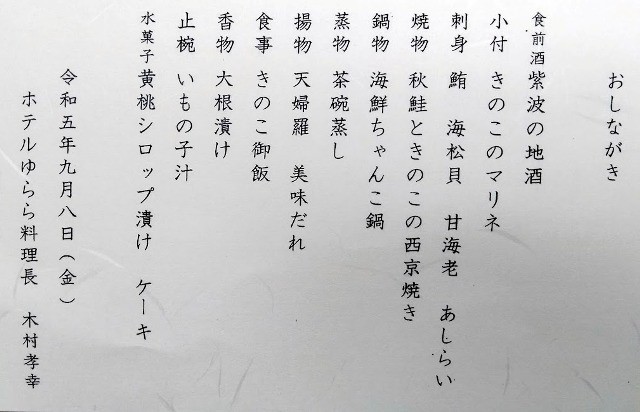 おしながき
食前酒 紫波の地酒
小付 きのこのマリネ
刺身 鮪 海松貝 甘海老 あしらい
焼物 秋鮭ときのこの西京焼き
鍋物 海鮮ちゃんこ鍋
蒸物 茶碗蒸し
揚物 天婦羅 美味だれ
食事 きのこ御飯
香物 大根漬け
止椀 いもの子汁
水菓子 黄桃シロップ漬け ケーキ
令和五年九月八日(金)
ホテルゆらら料理長 木村孝幸